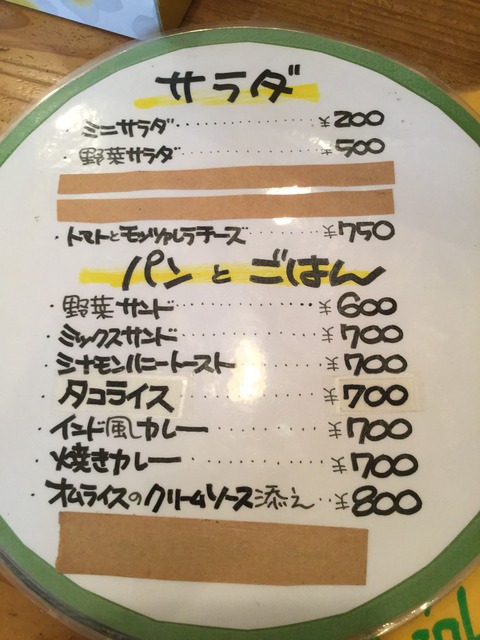 サラダ
・ミニサラダ ¥200
・野菜サラダ ¥500
・トマトとモッツァレラチーズ ¥750
パンとごはん
・野菜サンド ¥600
・ミックスサンド ¥700
・シナモンハニートースト ¥700
・タコライス ¥700
・インド風カレー ¥700
・焼きカレー ¥700
・オムライスのクリームソース添え ¥800